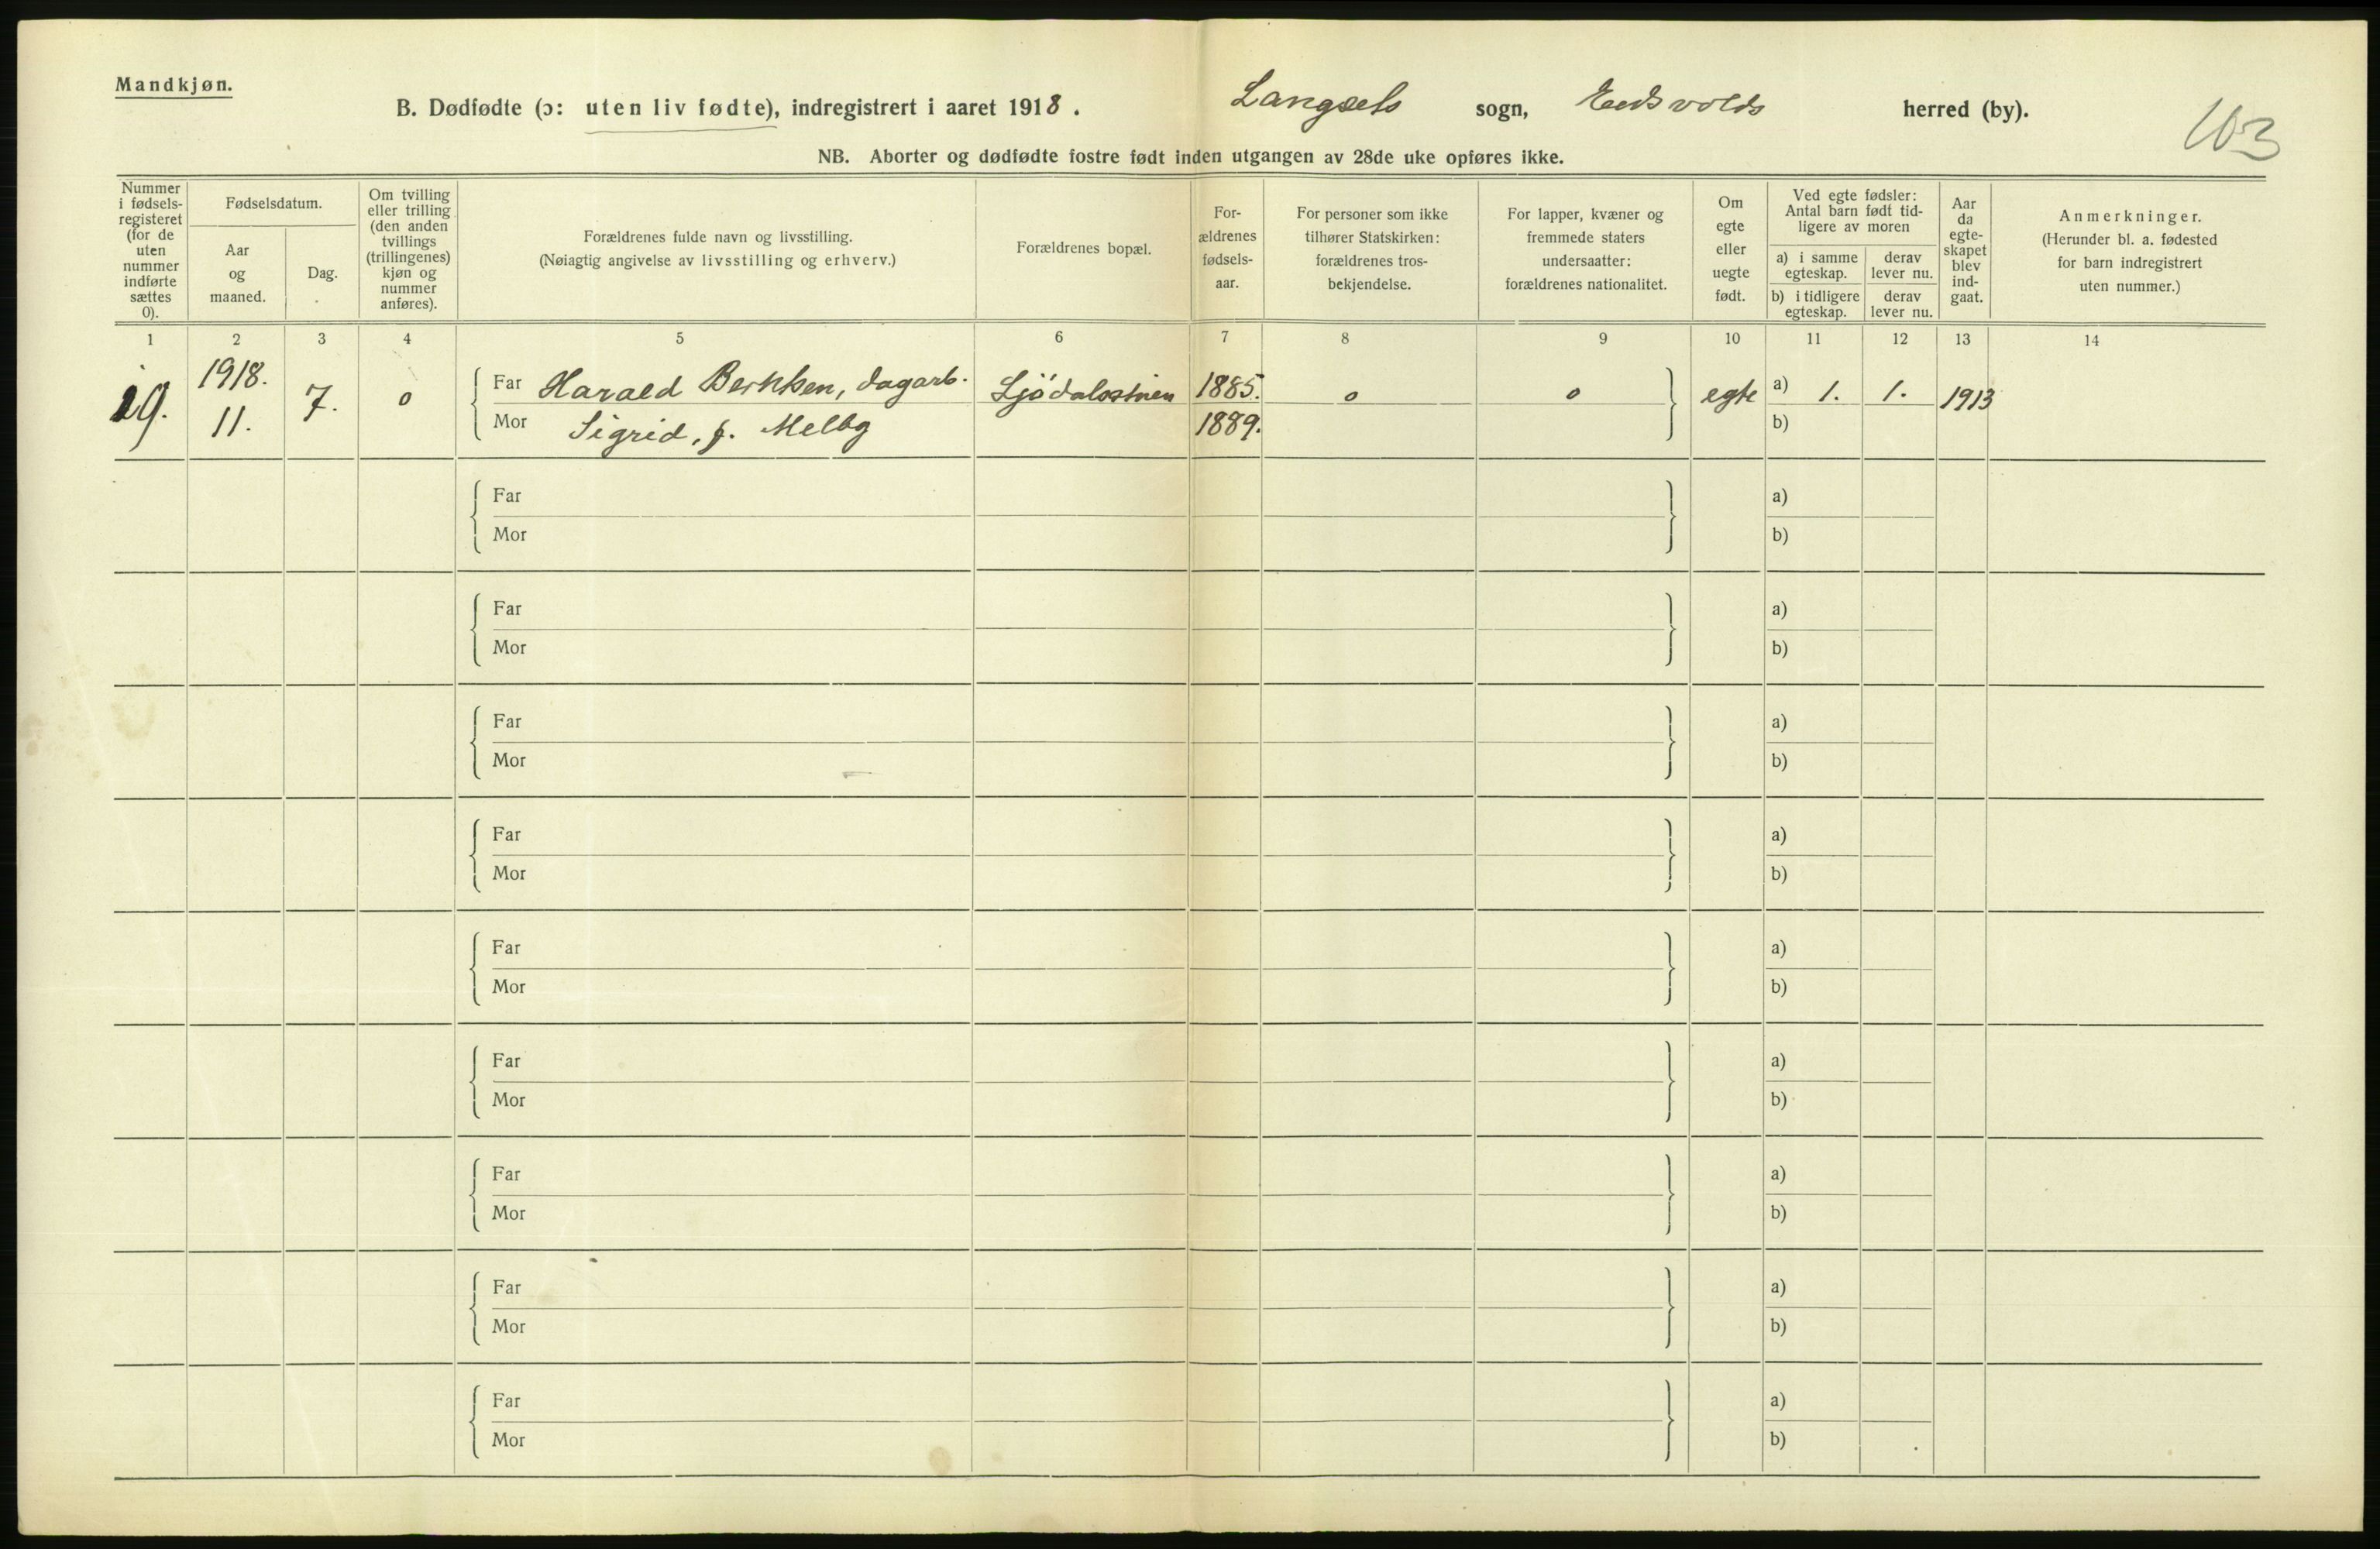 Mandkjøn.
B. Dødfødte (ɔ: uten liv fødte), indregistrert i aaret 1918. Langsets sogn, Eidsvolds herred (by).
103
NB. Aborter og dødfødte fostre født inden utgangen av 28de uke opføres ikke.
Nummer i fødsels-registeret (for de uten nummer indførte sættes 0).
Fødselsdatum.
Aar og maaned.
Dag.
Om tvilling eller trilling (den anden tvillings (trillingenes) kjøn og nummer anføres).
Forældrenes fulde navn og livsstilling.
(Nøiagtig angivelse av livsstilling og erhverv.)
Forældrenes bopæl.
For-ældrenes fødsels-aar.
For personer som ikke tilhører Statskirken: forældrenes tros-bekjendelse.
For lapper, kvæner og fremmede staters undersaatter: forældrenes nationalitet.
Om egte eller uegte født.
Ved egte fødsler: Antal barn født tid-ligere av moren
a) i samme egteskap.
derav lever nu.
b) i tidligere egteskap.
derav lever nu.
Aar da egte-skapet blev ind-gaat.
Anmerkninger.
(Herunder bl. a. fødested for barn indregistrert uten nummer.)
1 2 3 4 5 6 7 8 9 10 11 12 13 14
19. 1918. 11. 7. 0
Far Harald Berkken, dagarb. 1885. 0 0 egte a) 1. 1. 1913
Mor Sigrid, f. Melby 1889. b)
Far a)
Mor b)
Far a)
Mor b)
Far a)
Mor b)
Far a)
Mor b)
Far a)
Mor b)
Far a)
Mor b)
Far a)
Mor b)
Far a)
Mor b)
Far a)
Mor b)